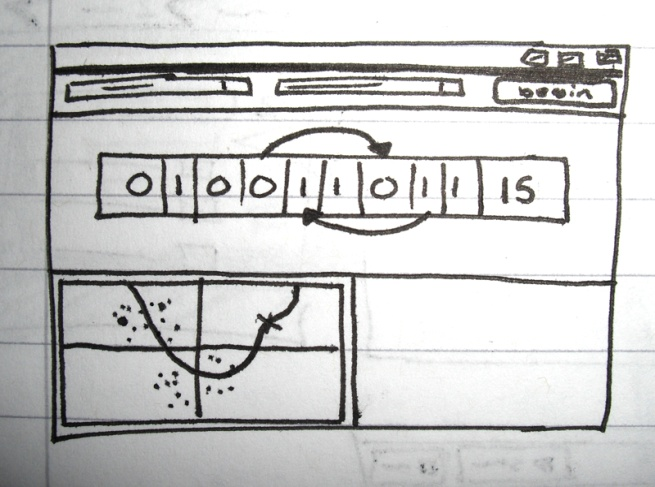 begin
0 1 0 0 1 1 0 1 1 15